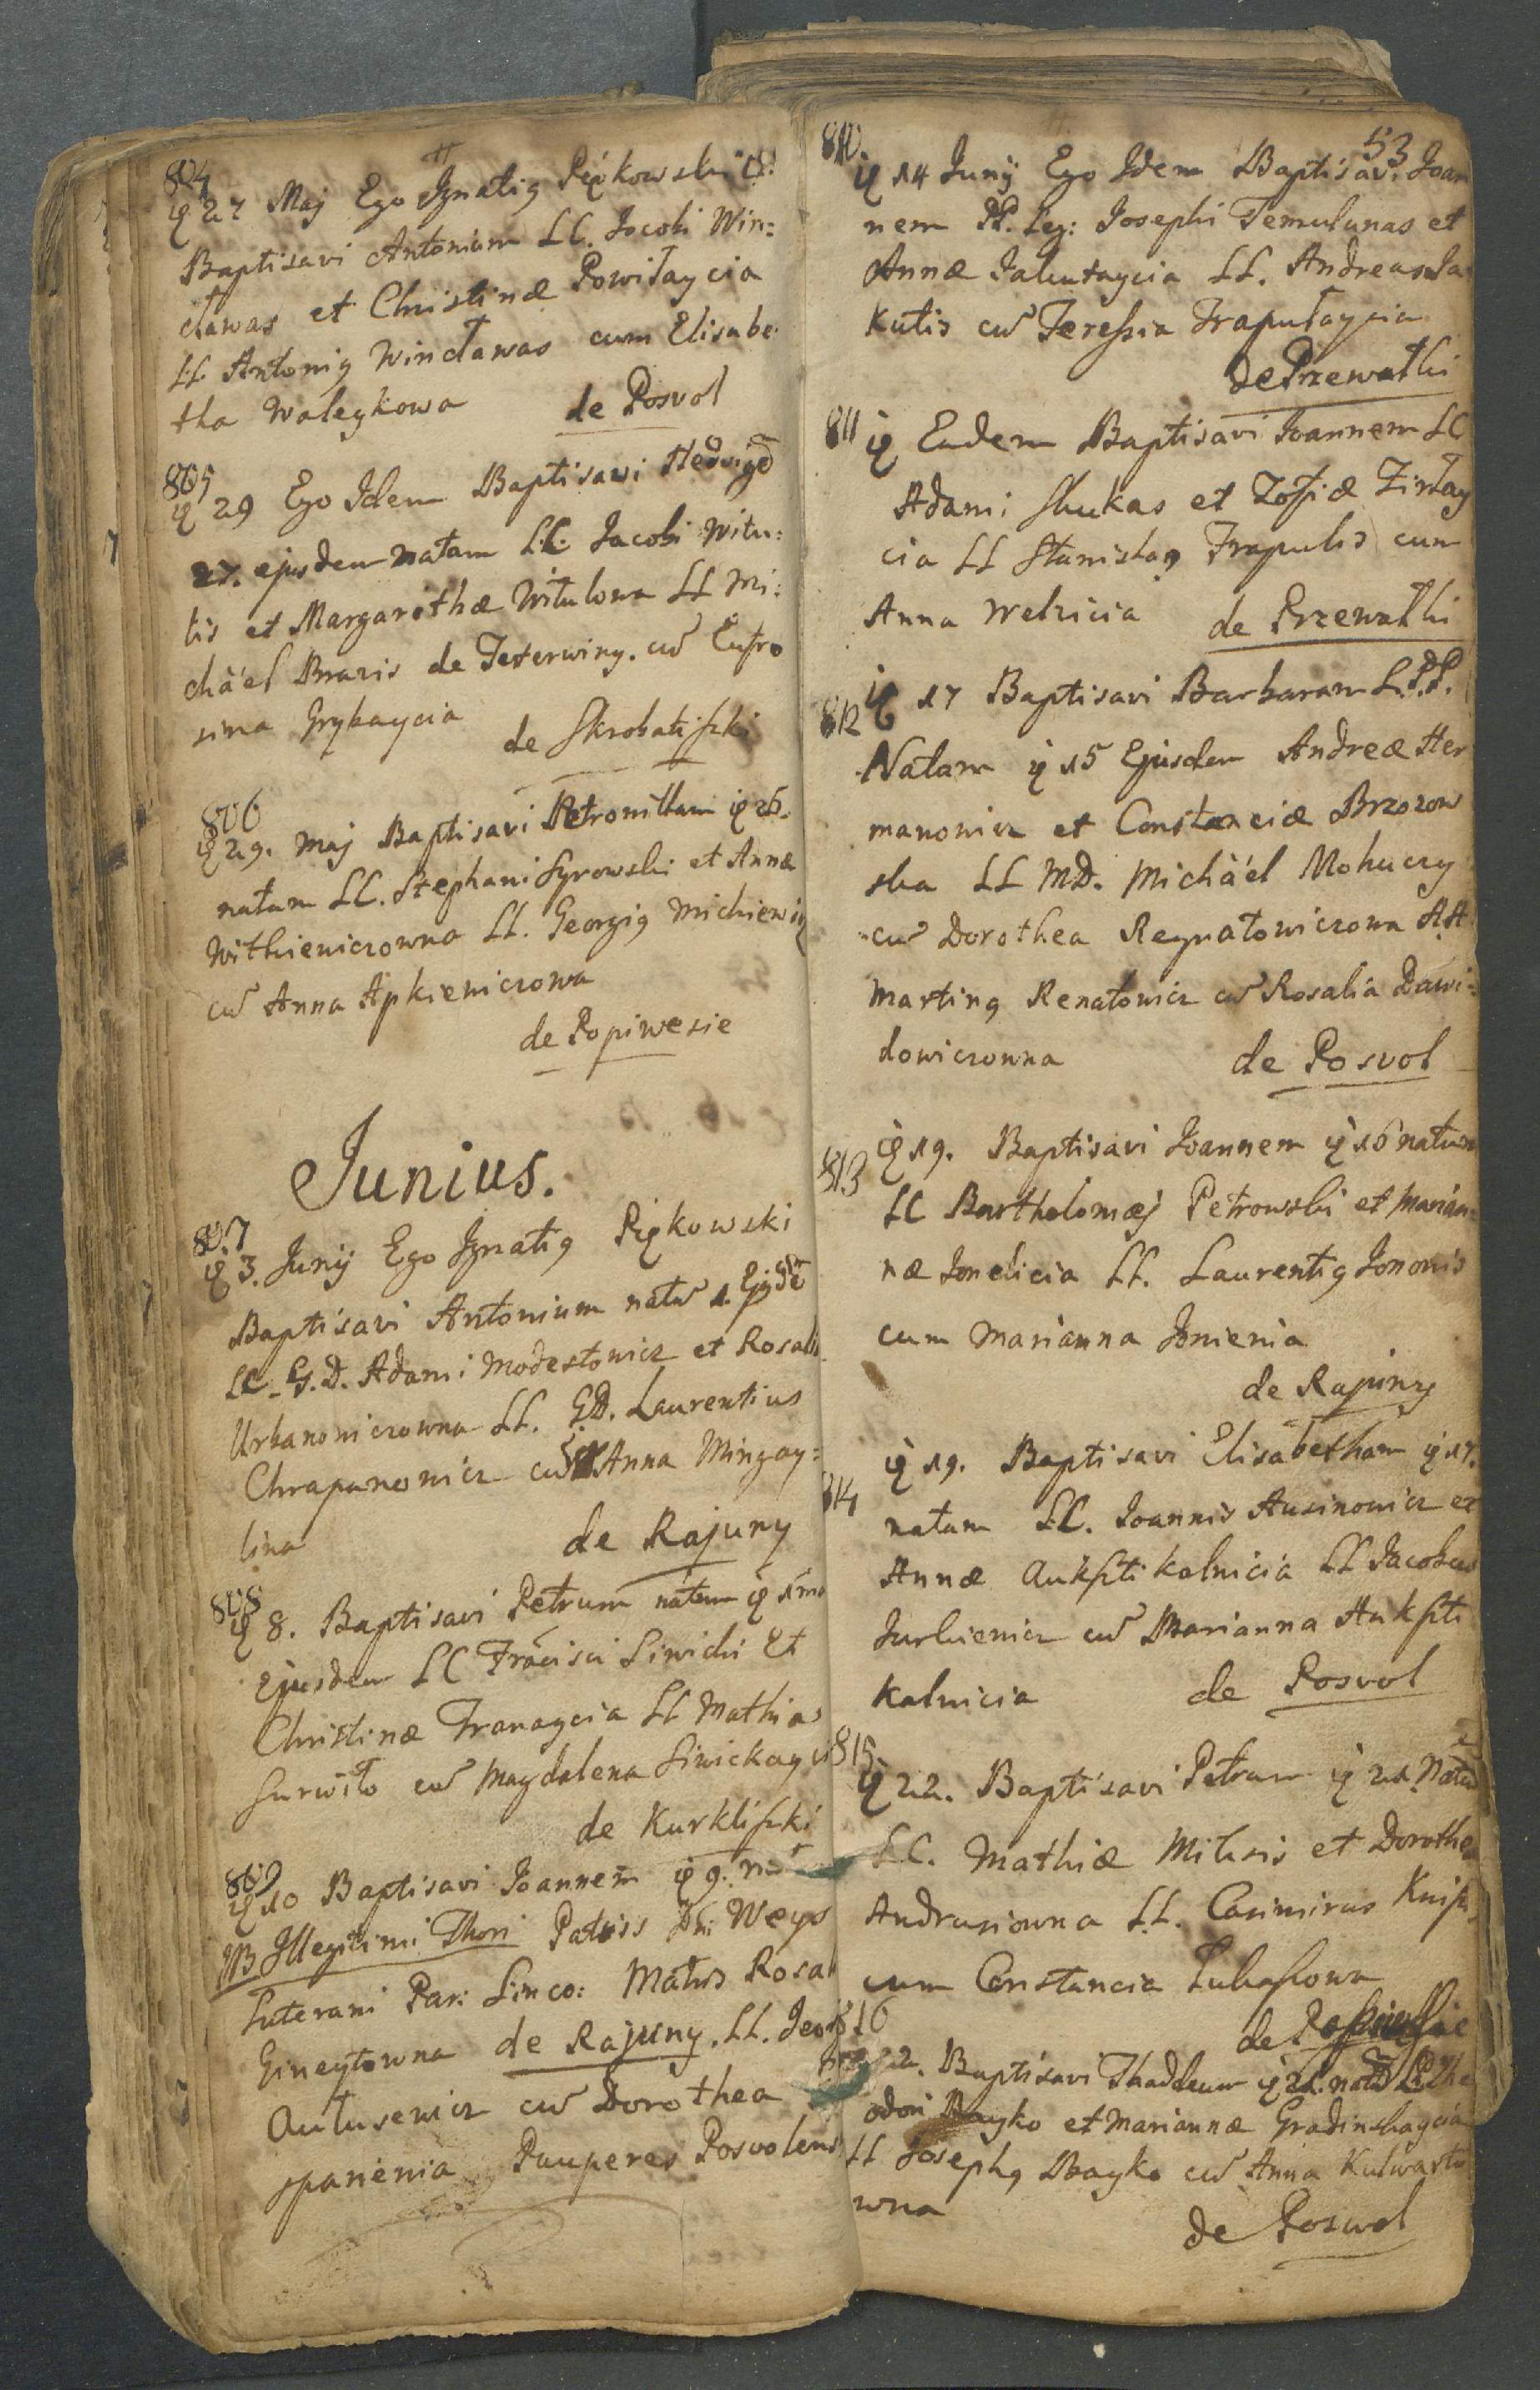 804
27 Maj Ego Ignatig Piękowski
Baptisavi Antonium LC. Jacobi Win=
cławas et Christinæ Powiłaycia
LL Antonig Wincławas cum Elisabe
tha Waleykowa de Posvol
805
29 Ego Idem Baptisavi Hedvigē
27. ejusdem natam LC. Jacobi Witu=
lis et Margarethæ Witulowa LL Mi=
chäel Brazis de Teterwiny. cū Eufro
sina Grybaycia de Skrobatiszki
806
29. Maj Baptisavi Petronillam 26.
natam LC. Stephani Syrowski et Annæ
Withieniczowna LL. Georgig Michiewicz
cū Anna Apkieniczowa
de Popiwesie
Junius.
807
3. Junij Ego Ignatig Piękowski
Baptisavi Antonium natū 1. Ejsdē
LC. G.D. Adami Modestowicz et Rosali
Urbanowiczowna LL. G.D. Laurentius
Chrapanowicz cū Anna Mingay=
lina de Rajuny
808
8. Baptisavi Petrum natum 1mo
Ejusdem LC Frācisci Siwicki Et
Christinæ Tranaycia LL Mathias
Surwiło cū Magdalena Siwickayci
de Kurkliszki
809
10 Baptisavi Joannem 9. nat
NB Illegitimi Thori Patris Dni Weys
Luterani Par: Linco: Matris Rosal
Gineytowna de Rajuny. LL. Jeorg
Autusewicz cū Dorothea
Spanienia Pauperes Posvolens
53
810.
14 Junij Ego Idem Baptisavi Joan
nem PP. Leg: Josephi Temulunas et
Annæ Jakutaycia LL. Andreas Ja
kutis cū Teressia Trapułaycia
de Przewałki
811 Eadem Baptisavi Joannem LC
Adami Skukas et Zofiæ Zirłay
cia LL Stanislag Trapulis cum
Anna Welzicia de Przewałki
812 17 Baptisavi Barbaram L.PP.
Natam 15 Ejusdem Andreæ Her
manowicz et Constanciæ Brzozow
ska LL MD. Michäel Mohuczy
cū Dorothea Reynatowiczowa AA
Marting Renatowicz cū Rosalia Dawi=
dowiczowna de Posvol
813 19. Baptisavi Joannem 16 natum
LC Bartholomæj Petrowski et Marian=
næ Jonelicia LL. Laurentig Jononis
cum Marianna Jonienia
de Rajuny
814 19. Baptisavi Elisabetham 17.
natam LC. Joannis Ausinowicz et
Annæ Aukszti kalnicia LL Jacobus
Jurkiewicz cū Marianna Aukszti
kalnicia de Posvol
815.
22. Baptisavi Petrum 21. Natū
LC. Mathiæ Milesis et Dorothe
Andrusiowna LL. Casimirus Knisz
cum Constancia Lukaszowa
de
816
22. Baptisavi Thaddeum 21. natū LC The
odori Bayko et Mariannæ Gradinskaycia
LL Josephg Bayko cū Anna Kulwarto
wna
de Poswol